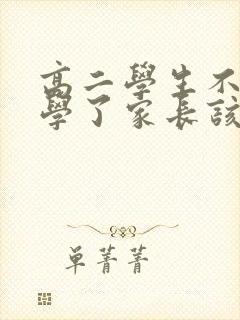 高二學生不
學了家長該
單菁菁